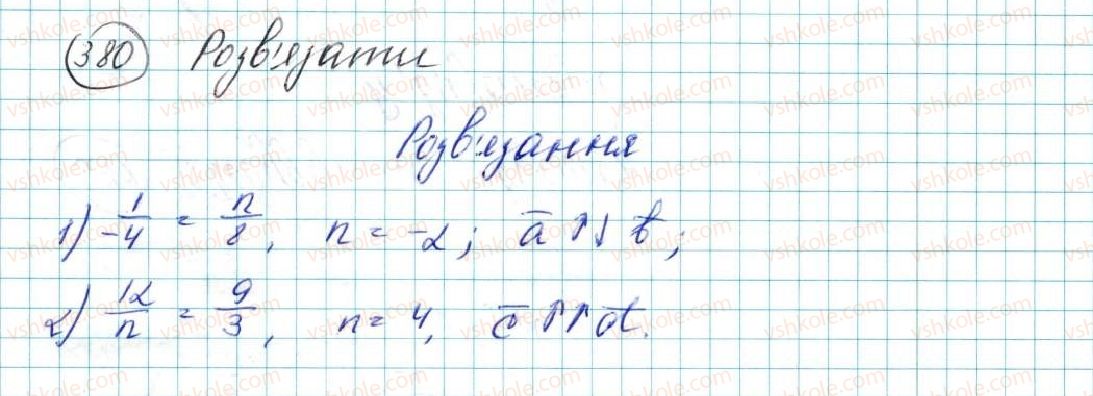 380 Розв'язати
Розв'язання
1) 1/-4 = n/8, n = -2; a̅ ↑↓ b̅;
2) 12/n = 9/3, n = 4, c̅ ↑↑ d̅.
vshkole.com